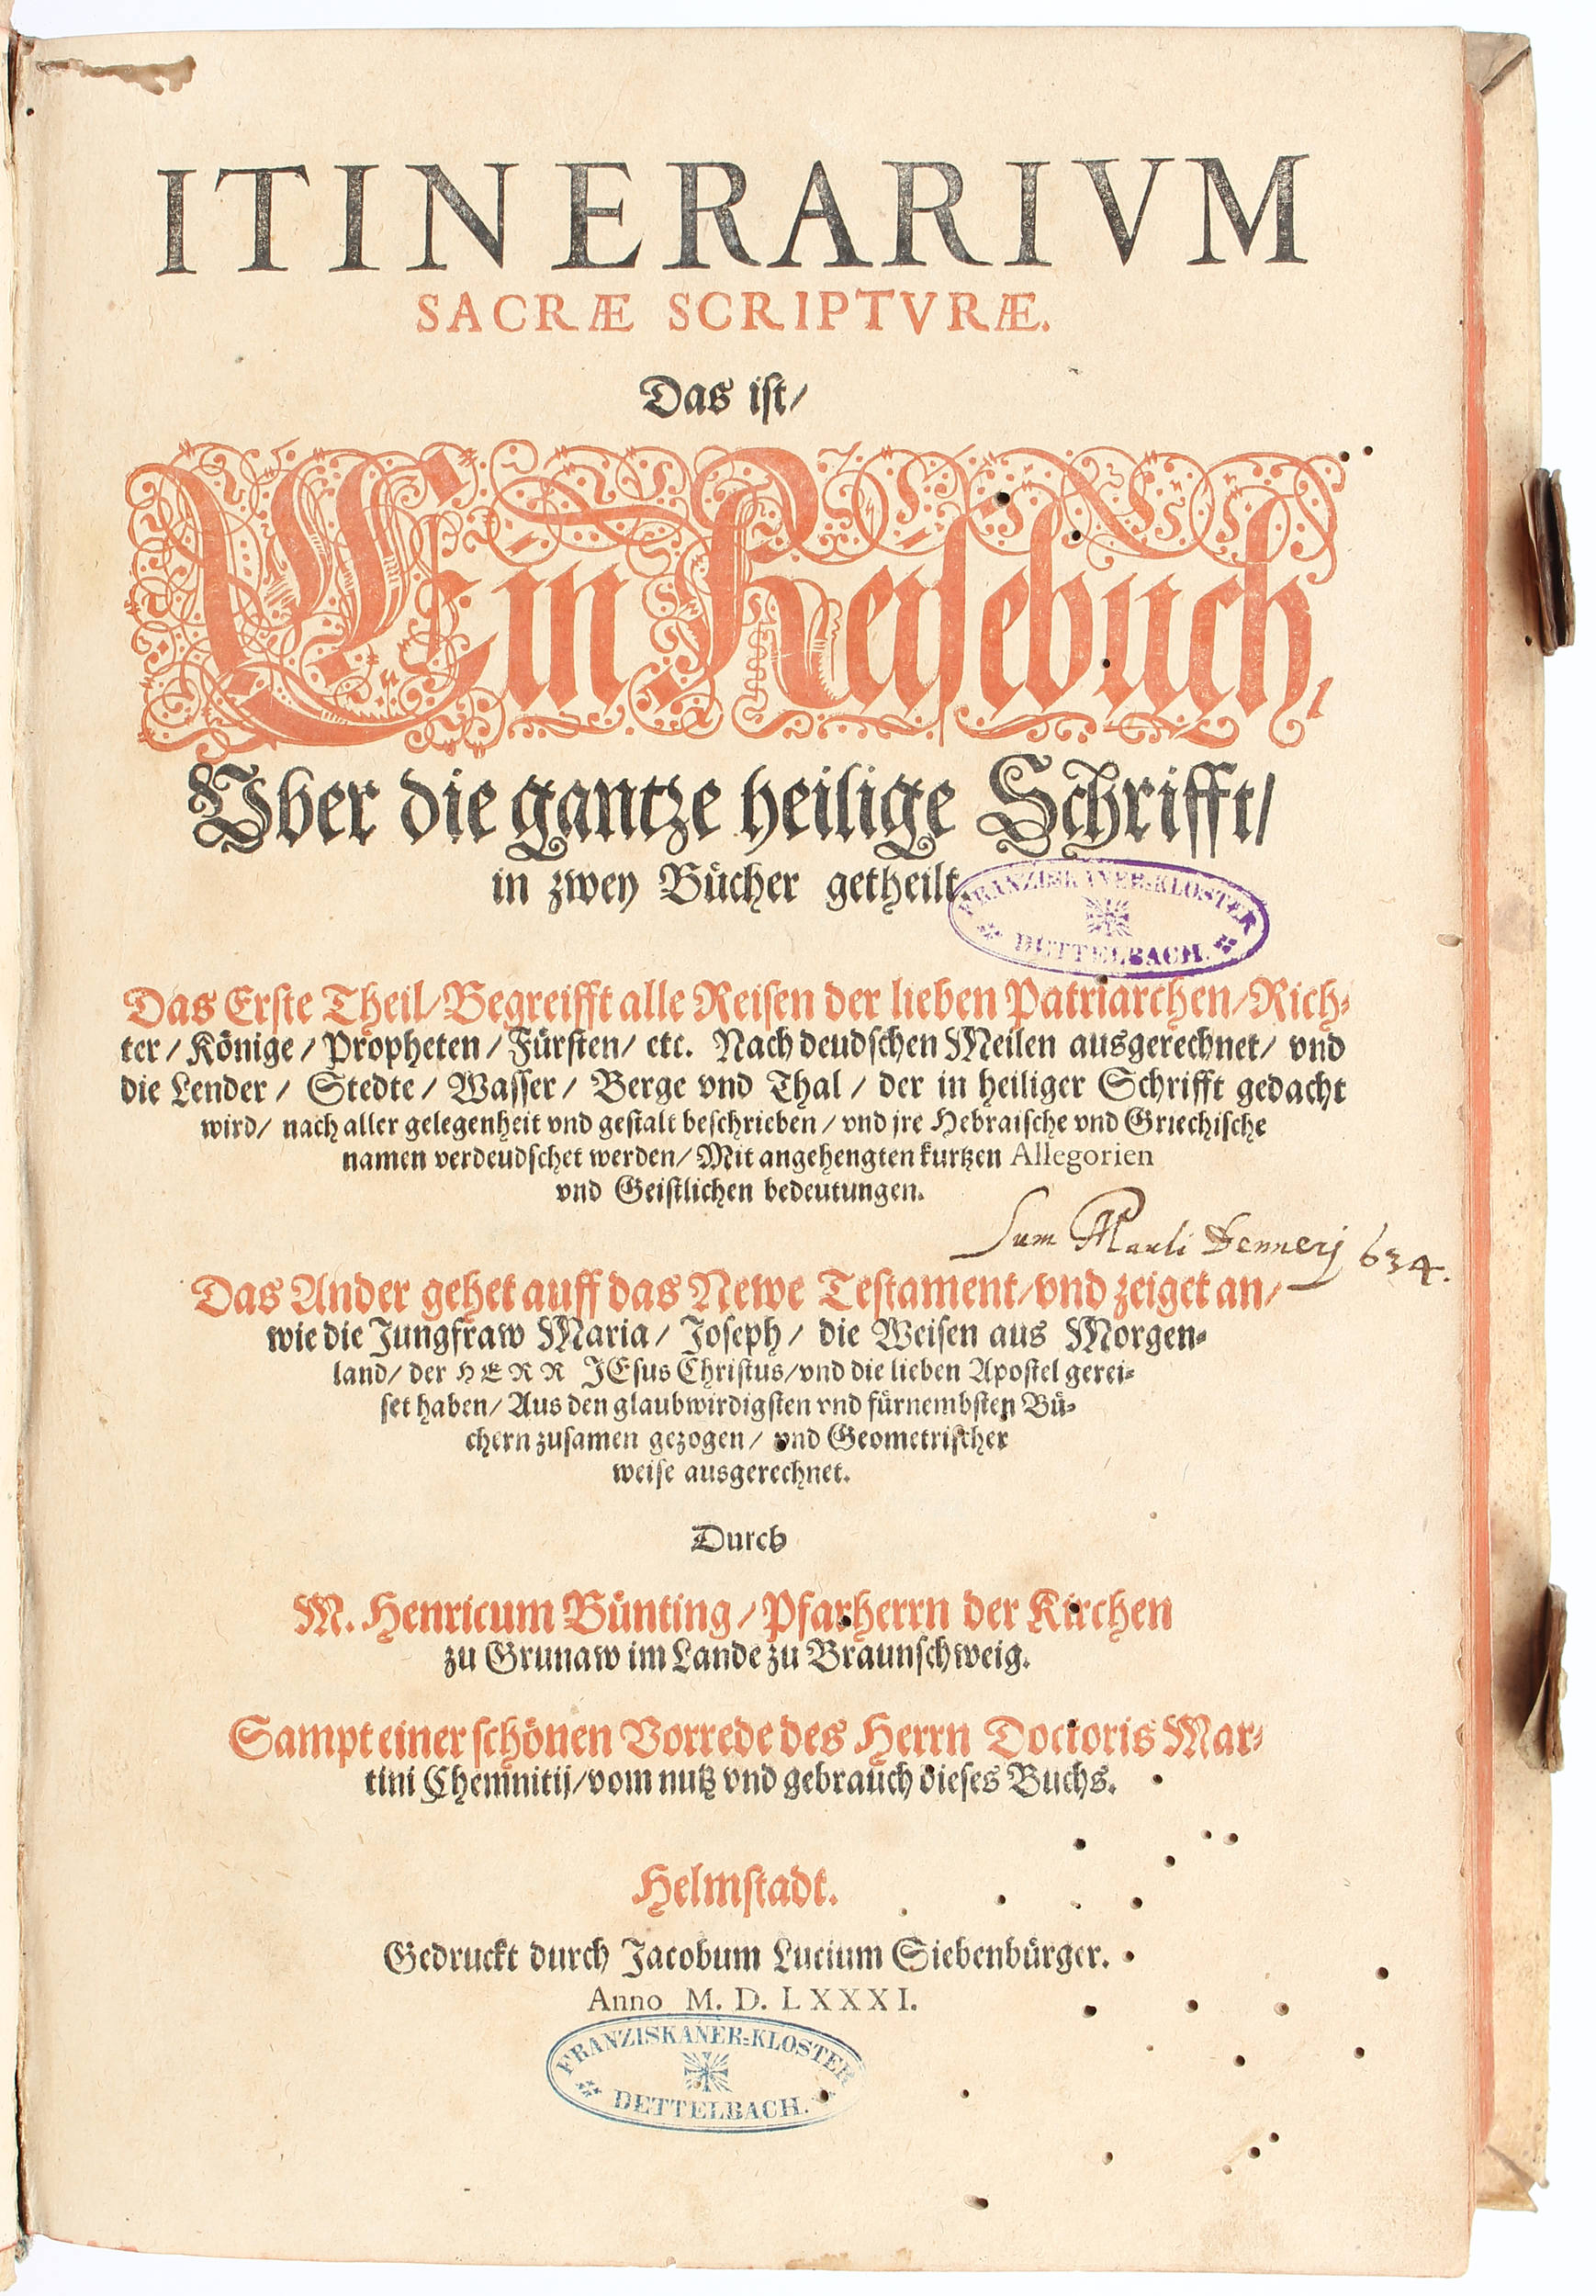 ITINERARIVM
SACRÆ SCRIPTVRÆ.
Das ist/
Ein Reisebuch,
Vber die gantze heilige Schrifft/
in zwey Bücher getheilt
FRANZISKANER-KLOSTER
DETTELBACH.
Das Erste Theil/Begreifft alle Reisen der lieben Patriarchen/Rich-
ter/Könige/Propheten/Fürsten/etc. Nach deudschen Meilen ausgerechnet/vnd
die Lender/Stedte/Wasser/Berge vnd Thal/der in heiliger Schrifft gedacht
wird/nach aller gelegenheit vnd gestalt beschrieben/vnd jre Hebraische vnd Griechische
namen verdeudschet werden/Mit angehengten kurtzen Allegorien
vnd Geistlichen bedeutungen.
Sum Pauli 634.
Das Ander gehet auff das Newe Testament/vnd zeiget an/
wie die Jungfraw Maria/Joseph/die Weisen aus Morgen-
land/der HERR JEsus Christus/vnd die lieben Apostel gerei-
set haben/Aus den glaubwirdigsten vnd fürnembsten Bü-
chern zusamen gezogen/vnd Geometrischer
weise ausgerechnet.
Durch
M. Henricum Bünting/Pfarherrn der Kirchen
zu Grunaw im Lande zu Braunschweig.
Sampt einer schönen Vorrede des Herrn Doctoris Mar-
tini Chemnitij/vom nutz vnd gebrauch dieses Buchs.
Helmstadt.
Gedruckt durch Jacobum Lucium Siebenbürger.
Anno M. D. LXXXI.
FRANZISKANER-KLOSTER
DETTELBACH.